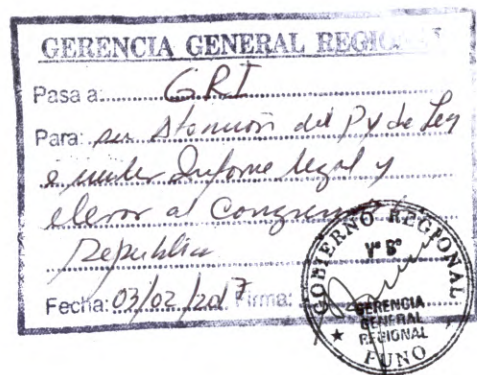 GERENCIA GENERAL REGIONAL
Pasa a: GRI
Para: su Atención del Py de Ley
e emitir Informe legal y
elevar al Congreso
Republica
Fecha: 03/02/2017 Firma:
GOBIERNO REGIONAL
V° B°
GERENCIA
GENERAL
REGIONAL
PUNO